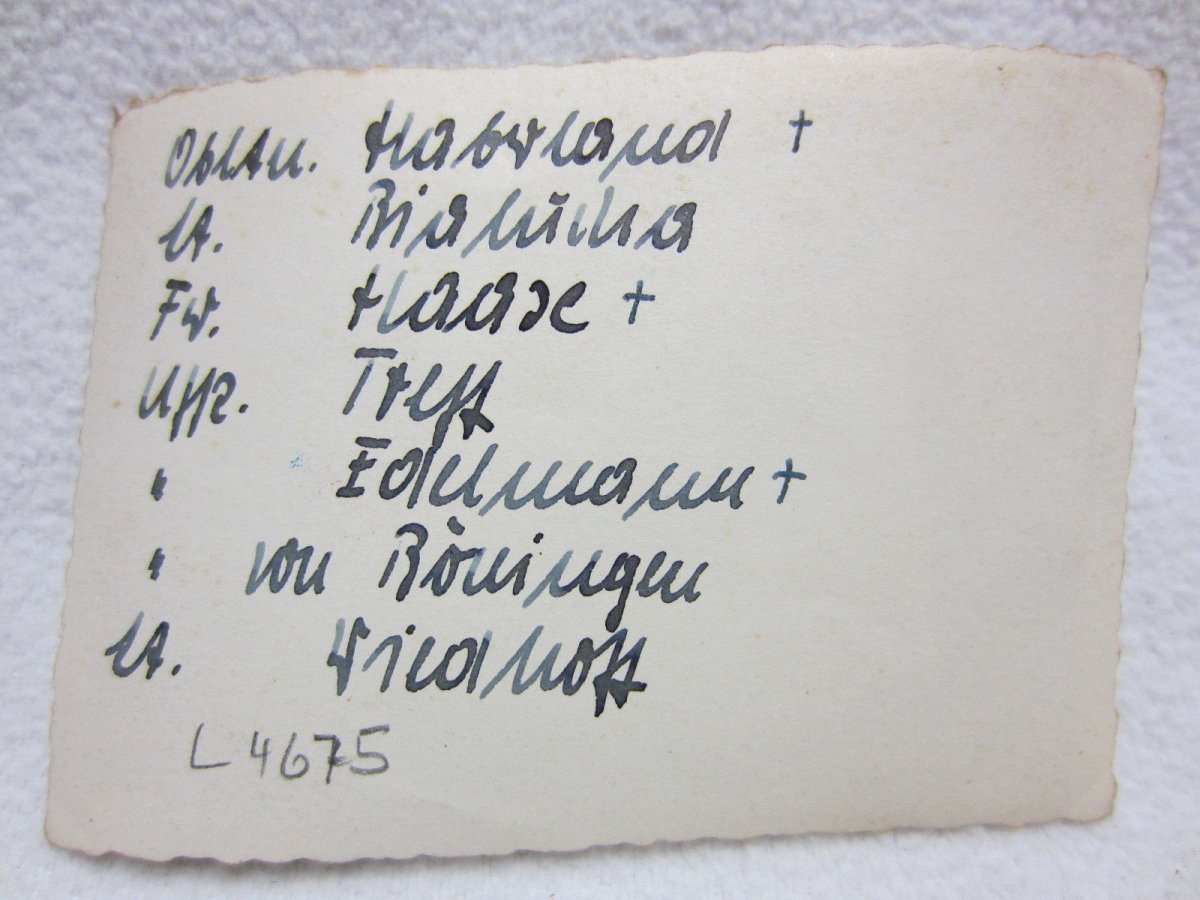 Obltn. Haberland +
Lt. Bialucha
Fw. Haase +
Uffz. Treff
" Edelmann +
" von Böningen
Lt. Wiedhoff
L 4675